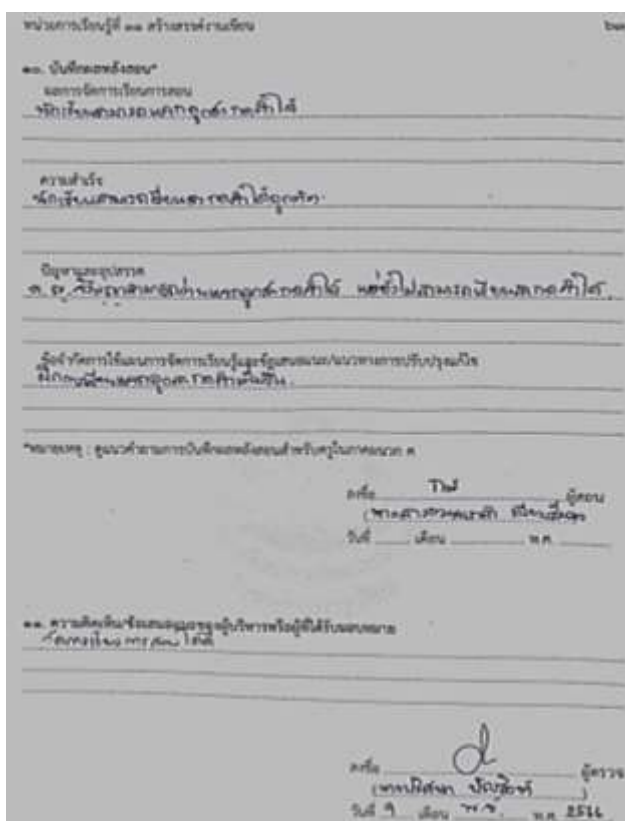 หน่วยการเรียนรู้ที่ ๑๑ สร้างสรรค์งานเขียน
๑๐. บันทึกผลหลังสอน*
ผลการจัดการเรียนการสอน
นักเรียนสามารถแจกลูกสะกดคำได้
ความสำเร็จ
นักเรียนสามารถเขียนสะกดคำได้ถูกต้อง
ปัญหาและอุปสรรค
สามารถอ่านแจกลูกสะกดคำได้ แต่ยังไม่สามารถเขียนสะกดคำได้
ข้อจำกัดการใช้แผนการจัดการเรียนรู้และข้อเสนอแนะ/แนวทางการปรับปรุงแก้ไข
ฝึกเขียนแจกลูกสะกดคำเพิ่มขึ้น
*หมายเหตุ : ดูแนวคำถามการบันทึกผลหลังสอนสำหรับครูในภาคผนวก ค
ลงชื่อ ผู้สอน
วันที่ เดือน พ.ศ.
๑๑. ความคิดเห็น/ข้อเสนอแนะของผู้บริหารหรือผู้ที่ได้รับมอบหมาย
จัดการเรียนการสอนได้ดี
ลงชื่อ ผู้ตรวจ
วันที่ 9 เดือน พ.ย. พ.ศ. 2566